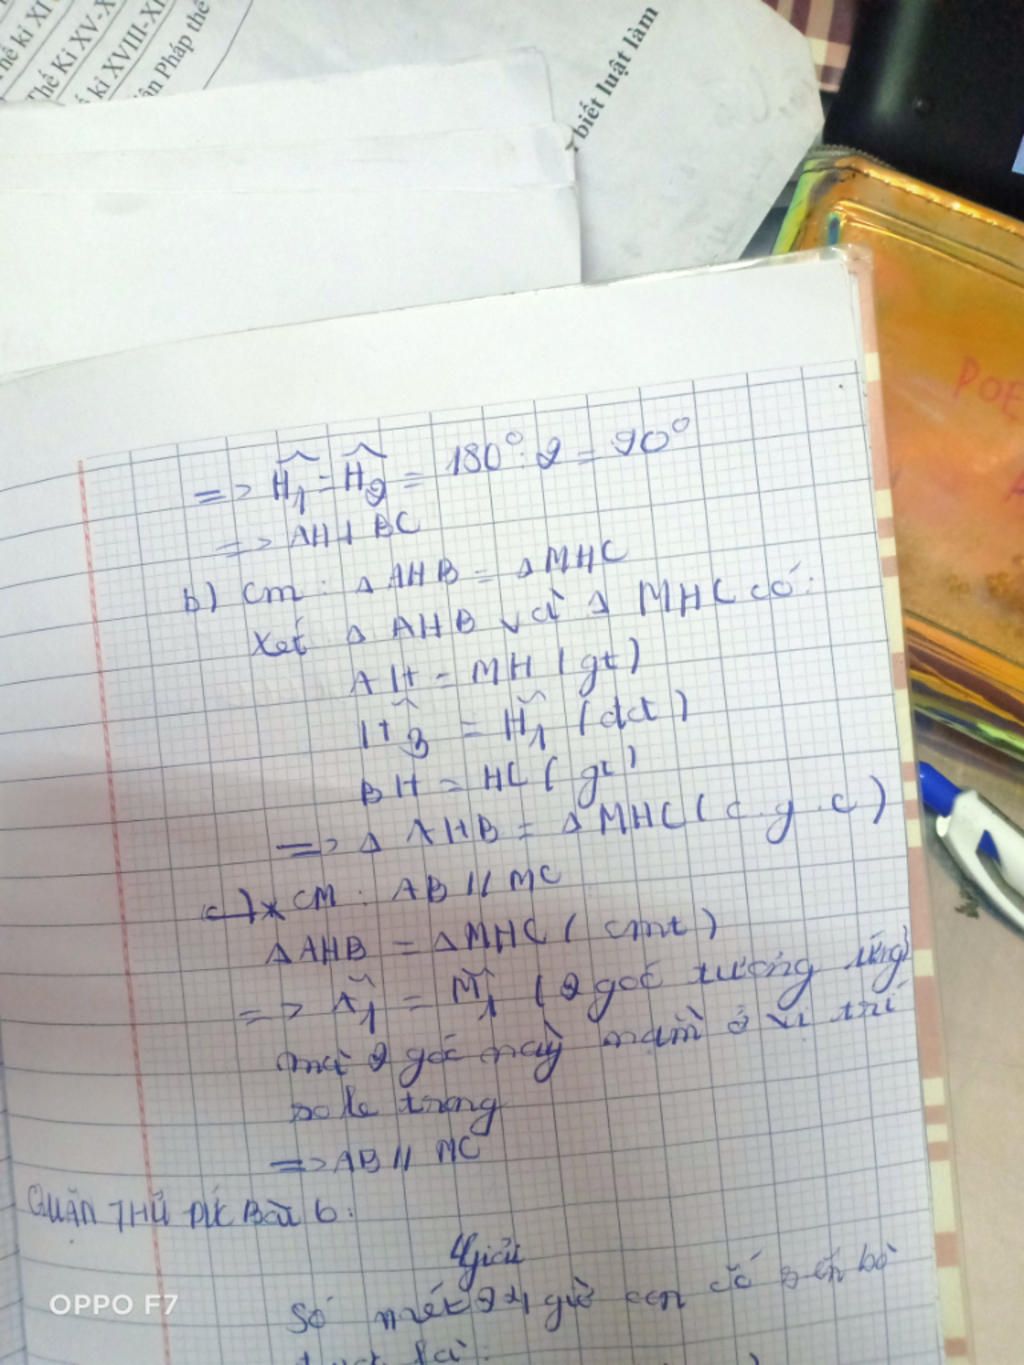 hế kỉ XI
Thế Kỉ XV-X
ế kỉ XVIII-XI
ân Pháp thế
biết luật làm
POE
=> Ĥ₁ = Ĥ₂ = 180° : 2 = 90°
=> AH ⊥ BC
b) Cm : Δ AHB = Δ MHC
Xét Δ AHB và Δ MHC có:
AH = MH (gt)
Ĥ₃ = Ĥ₁ (dd)
BH = HC (gt)
=> Δ AHB = Δ MHC (c.g.c)
c) * CM : AB // MC
ΔAHB = ΔMHC (cmt)
=> Â₁ = M̂₁ (2 góc tương ứng)
mà 2 góc này nằm ở vị trí
so le trong
=> AB // MC
QUẬN THỦ ĐỨC Bài 6:
Giải
Số mét 24 giờ con ốc sên bò
là:
OPPO F7